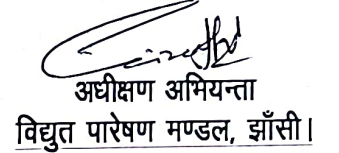 अधीक्षण अभियन्ता
विद्युत पारेषण मण्डल, झाँसी।